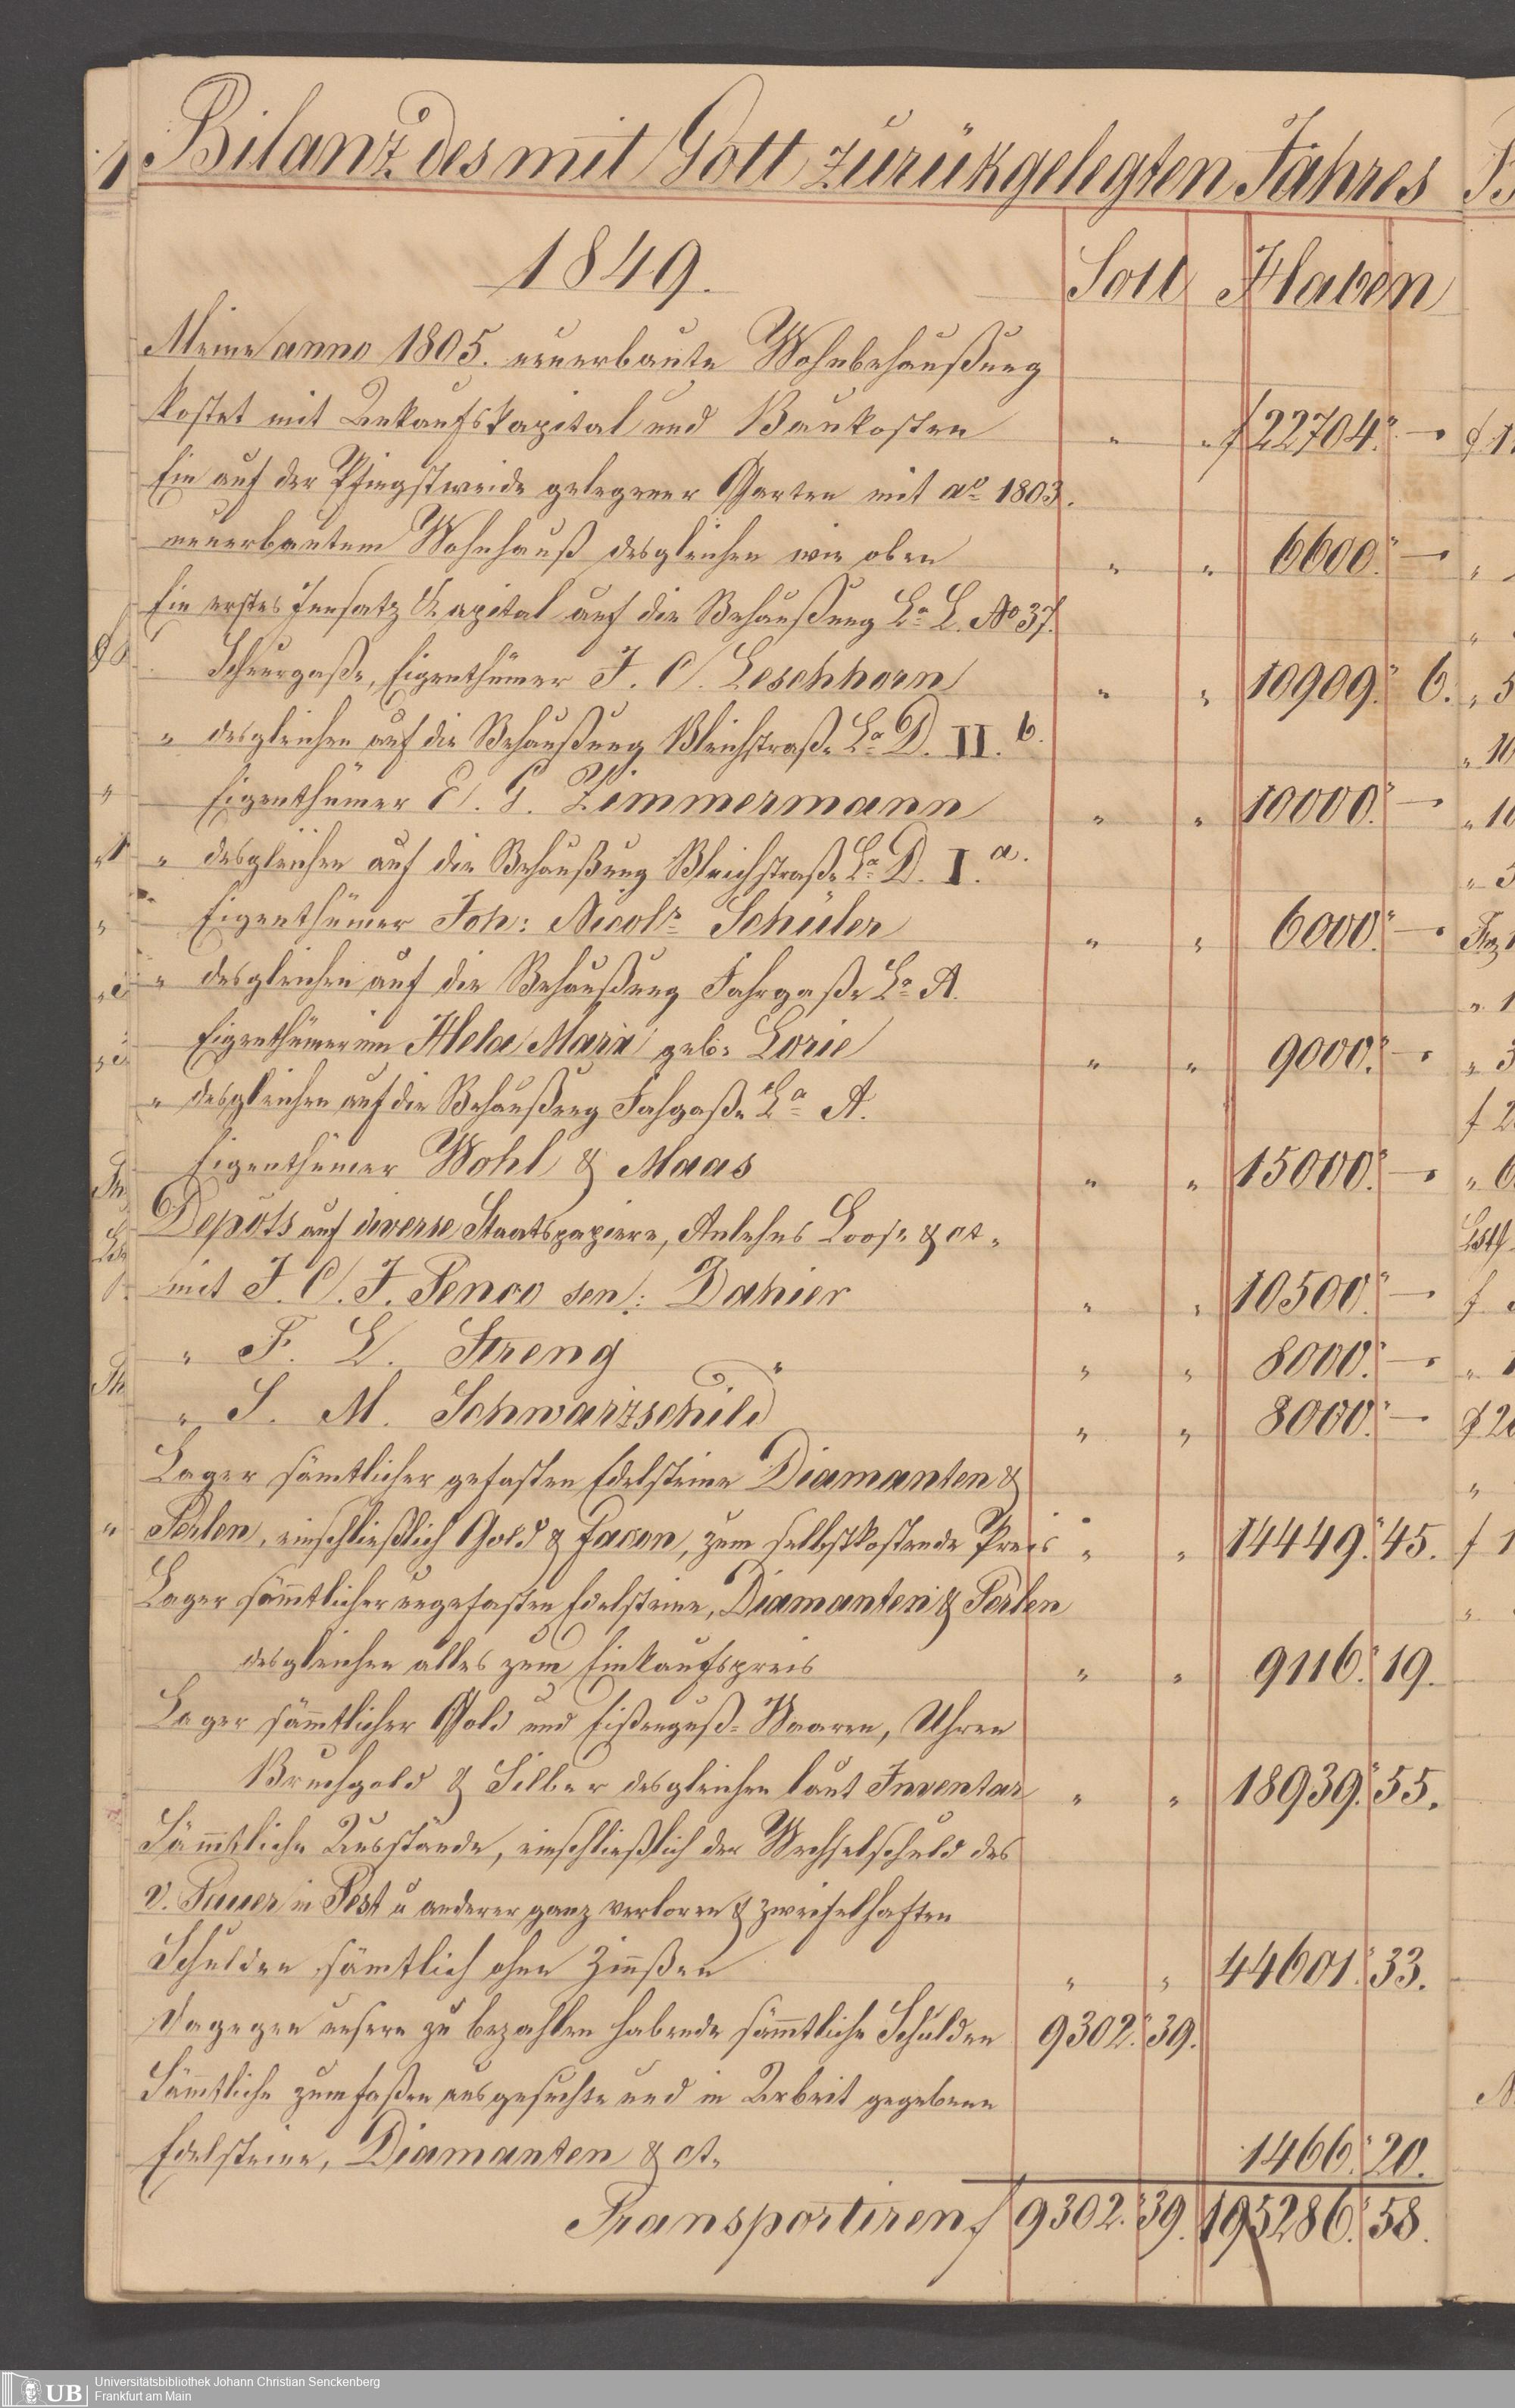 Bilanz des mit Gott zurükgelegten Jahres
1849. Soll Haben
Meine anno 1805. neuerbaute Wohnbehaußung
kostet mit Ankaufskapital und Baukosten " " f 22704." —
Ein auf der Pfingstweide gelegener Garten mit ao 1803.
neuerbautem Wohnhauß desgleichen wie oben " " 6600." —
Ein erstes Insatz Kapital auf die Behaußung La L. No 37.
Schnurgaße, Eigenthümer J. C. Leschhorn " " 10909." 6.
" desgleichen auf die Behaußung Bleichstraße La D. II. b.
Eigenthümer E. G. Zimmermann " " 10000." —
" desgleichen auf die Behaußung Bleichstraße La D. I. a.
Eigenthümer Joh: Nicols Schüler " " 6000." —
" desgleichen auf die Behaußung Fahrgaße La A.
Eigenthümerinn Hela Marx geb: Lorie " " 9000." —
" desgleichen auf die Behaußung Fahgaße La A.
Eigenthümer Wohl & Maas " " 15000." —
Depots auf diverse Staatspapiere, Anlehns Loose & ct.
mit J. C. J. Penco sen: Dahier " " 10500." —
" F. L. Streng " " 8000." —
" S. M. Schwarzschild " " " 8000." —
Lager sämtlicher gefasten Edelsteine Diamanten &
Perlen, einschließlich Gold & Facon, zum selbstkostende Preis " " 14449." 45.
Lager sämtlicher ungefasten Edelsteine, Diamanten & Perlen
desgleichen alles zum Einkaufspreis " " 9116." 19.
Lager sämtlicher Gold und Eißenguß-Waaren, Uhren
Bruchgold & Silber desgleichen laut Inventar " " 18939." 55.
Sämtliche Ausstände, einschließlich der Wechselschuld des
v. Pauer in Pest u anderer ganz verloren & zweifelhaften
Schulden sämtlich ohne Zinßen " " 44601." 33.
Dagegen unsere zu bezahlen habende sämtliche Schulden 9302." 39.
Sämtliche zum faßen ausgesuchte und in Arbeit gegebene
Edelsteine, Diamanten & ct. 1466." 20.
Transportiren f 9302." 39. 195286." 58.
UB Universitätsbibliothek Johann Christian Senckenberg
Frankfurt am Main